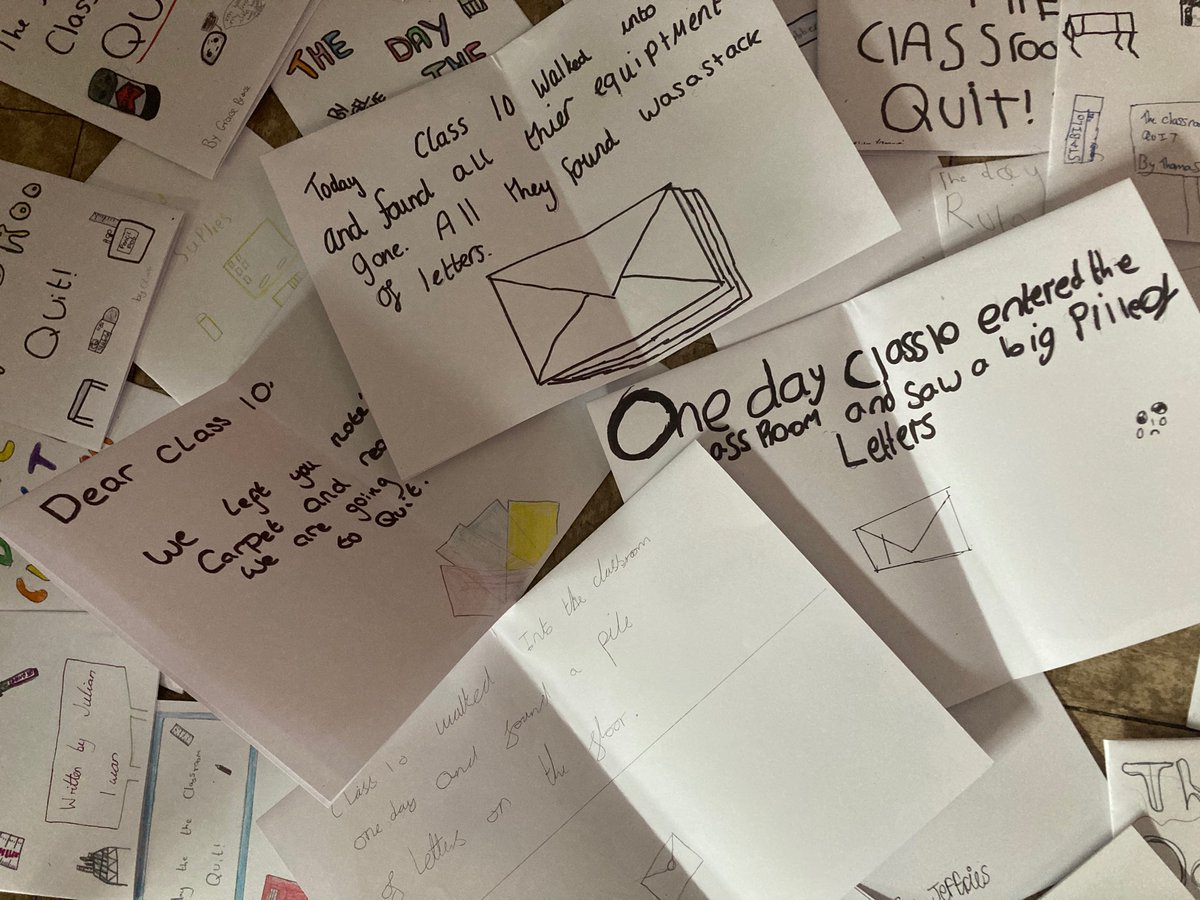 The
Class
QU
By Grace
THE DAY
THE
Today Class 10 Walked into
and found all thier equiptment
gone. All they found was a stack
of letters.
THE
ClASSroo
QUiT!
STABILO
The classro
QUIT
By Thomas
The day
Ruln
QUIT!
supplies
One day Class 10 entered the
assRoom and saw a big Pilleof
Letters
Dear Class 10.
We Left you note
Carpet and rea
we are going
to Quit.
Class 10 walked Into the classroom
one day and found a pile
of letters on the floor.
Written by Julian
I wan
the the Classroom
Quit!
Joffries
Th